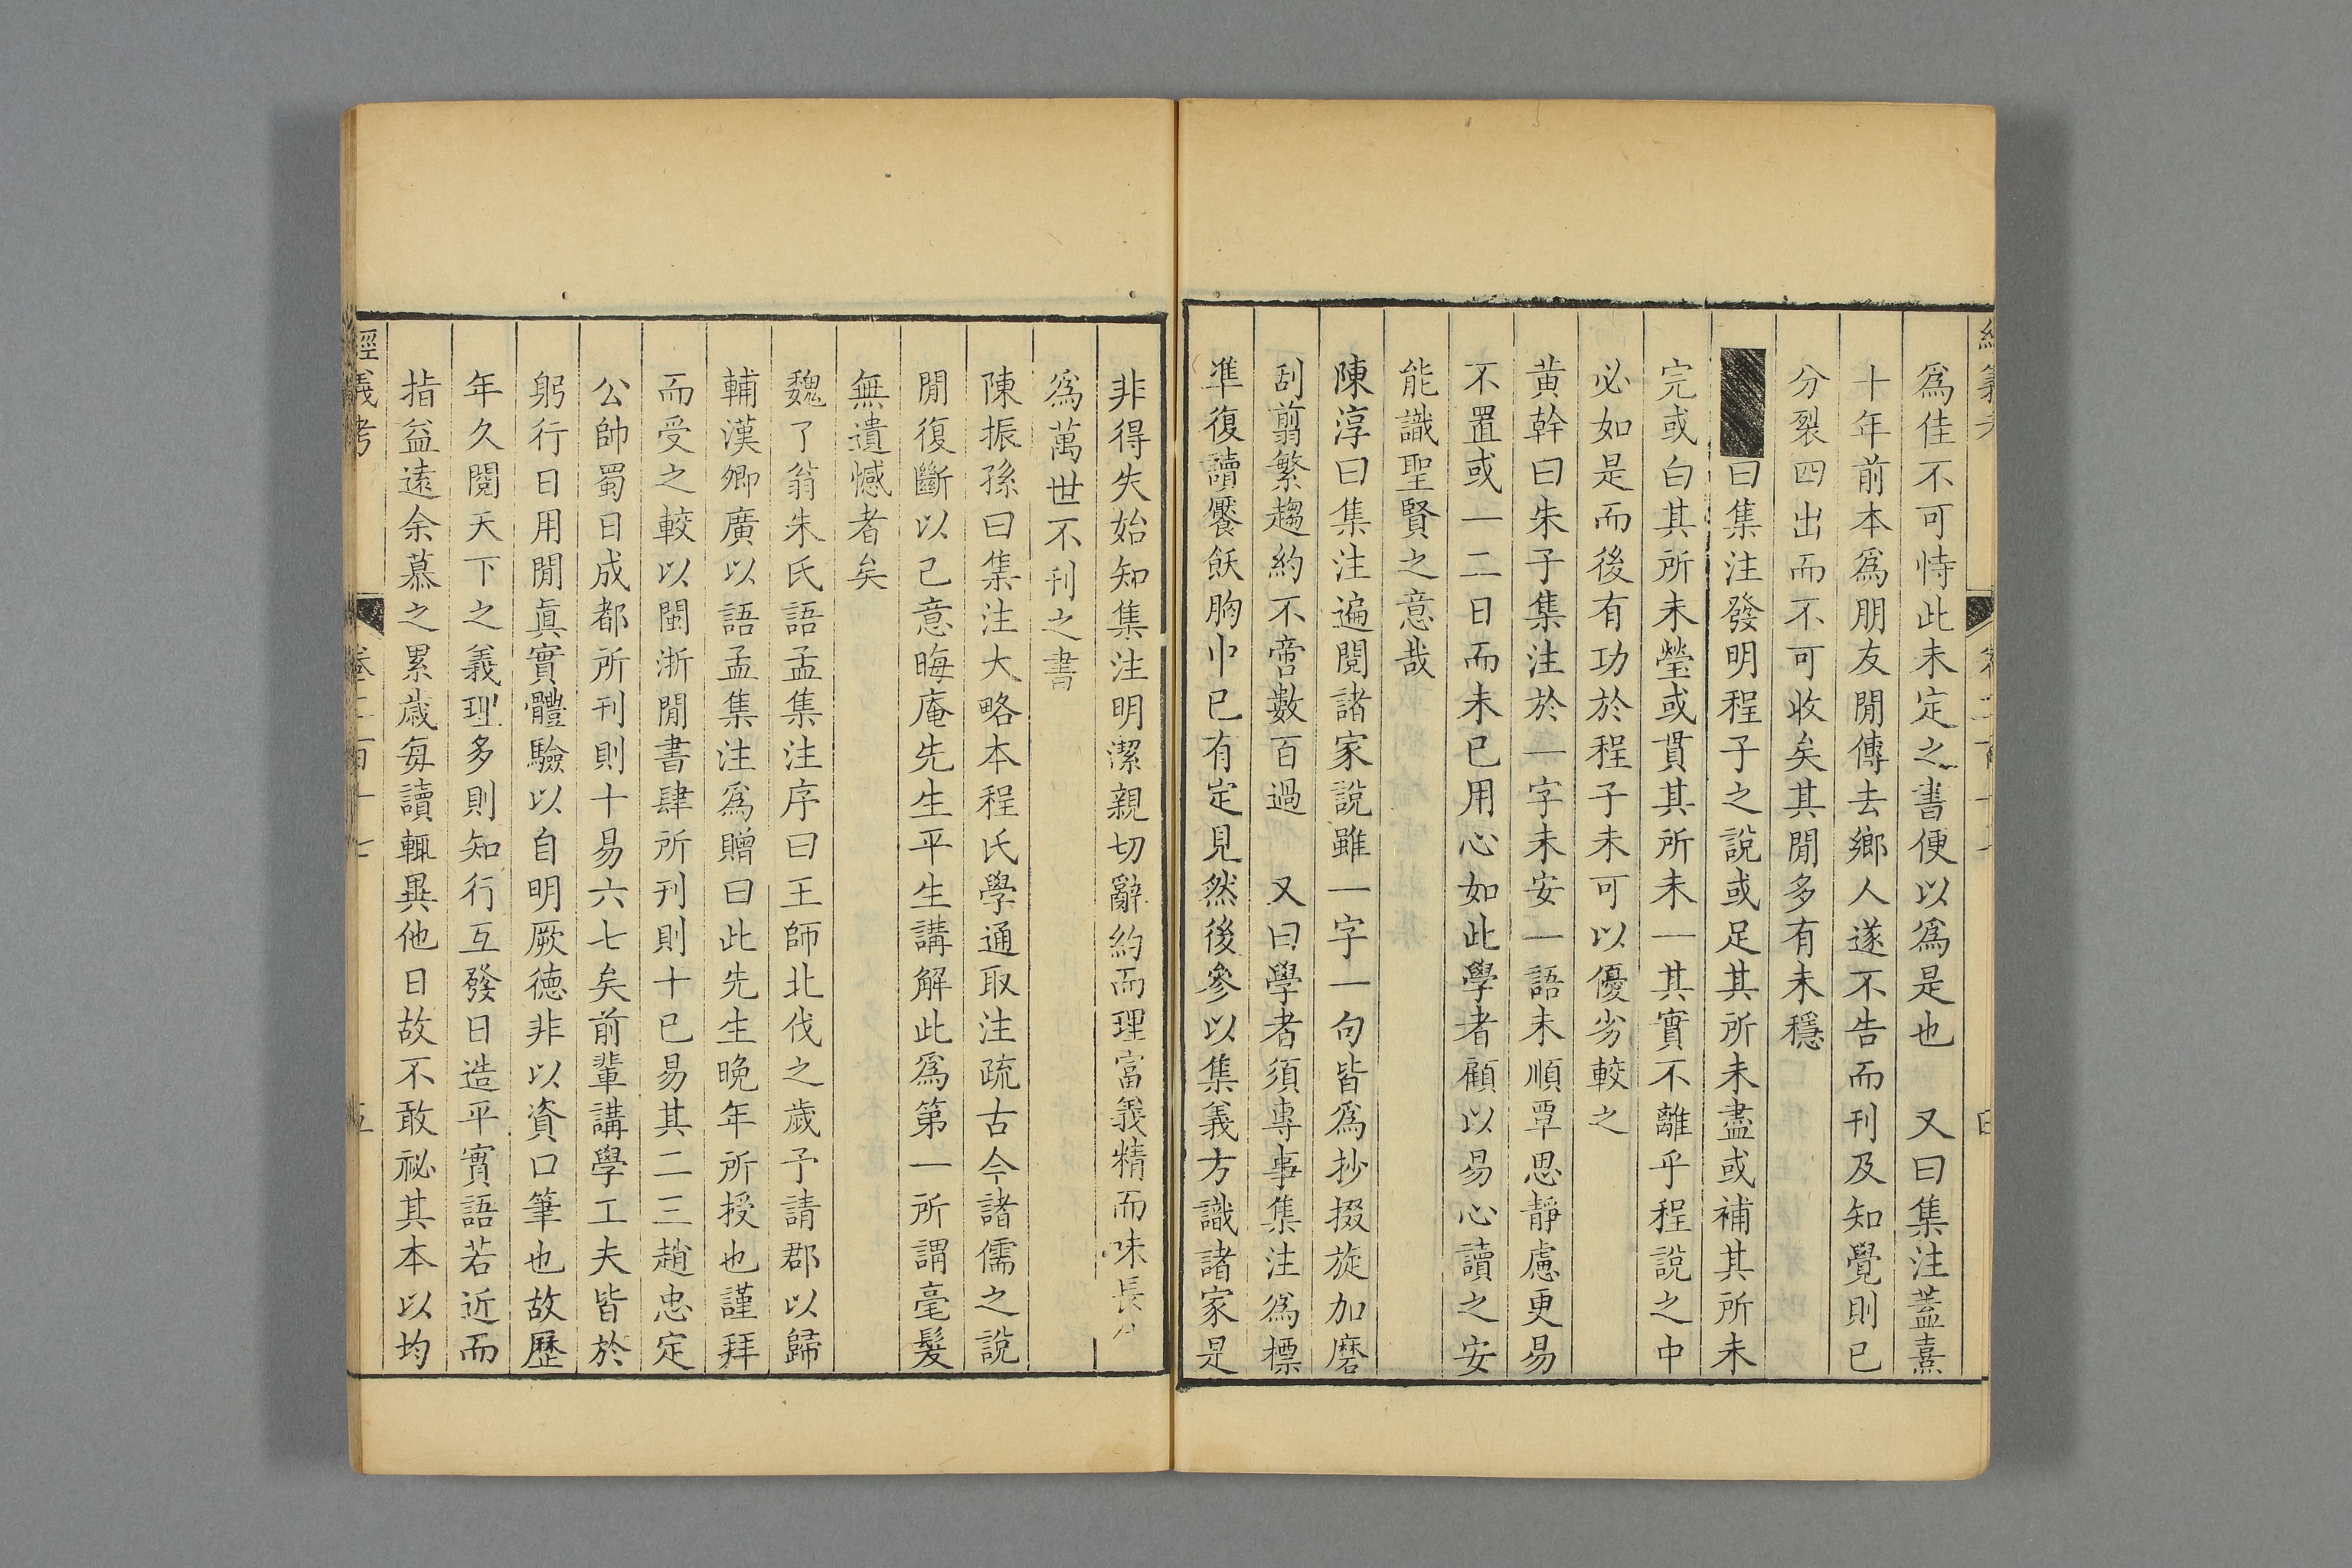 爲佳不可恃此未定之書便以爲是也　又曰集注蓋熹
十年前本爲朋友閒傳去鄉人遂不告而刊及知覺則已
分裂四出而不可收矣其閒多有未穩
曰集注發明程子之說或足其所未盡或補其所未
完或白其所未瑩或貫其所未一其實不離乎程說之中
必如是而後有功於程子未可以優劣較之
黄幹曰朱子集注於一字未安一語未順覃思靜慮更易
不置或一二日而未已用心如此學者顧以易心讀之安
能識聖賢之意哉
陳淳曰集注遍閱諸家說雖一字一句皆爲抄掇旋加磨
刮翦繁趨約不啻數百過　又曰學者須專事集注爲標
準復讀饜飫胸中已有定見然後參以集義方識諸家是
非得失始知集注明潔親切辭約而理富義精而味長
爲萬世不刊之書
陳振孫曰集注大略本程氏學通取注疏古今諸儒之說
閒復斷以己意晦庵先生平生講解此爲第一所謂毫髮
無遺憾者矣
魏了翁朱氏語孟集注序曰王師北伐之歲予請郡以歸
輔漢卿廣以語孟集注爲贈曰此先生晚年所授也謹拜
而受之較以閩浙閒書肆所刊則十已易其二三趙忠定
公帥蜀日成都所刊則十易六七矣前輩講學工夫皆於
躬行日用閒眞實體驗以自明厥德非以資口筆也故歷
年久閱天下之義理多則知行互發日造平實語若近而
指益遠余慕之累歲每讀輒異他日故不敢祕其本以均
經義考　卷二百十七　五